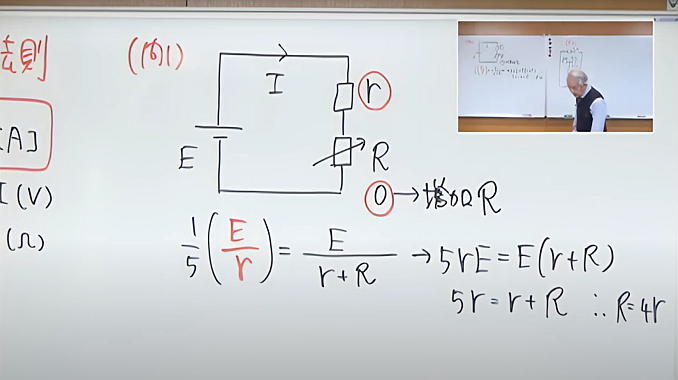 法則
[A]
I(V)
(Ω)
(例1)
I
r
E
R
0→増加 R
1/5(E/r)=E/(r+R)→5rE=E(r+R)
5r=r+R ∴R=4r